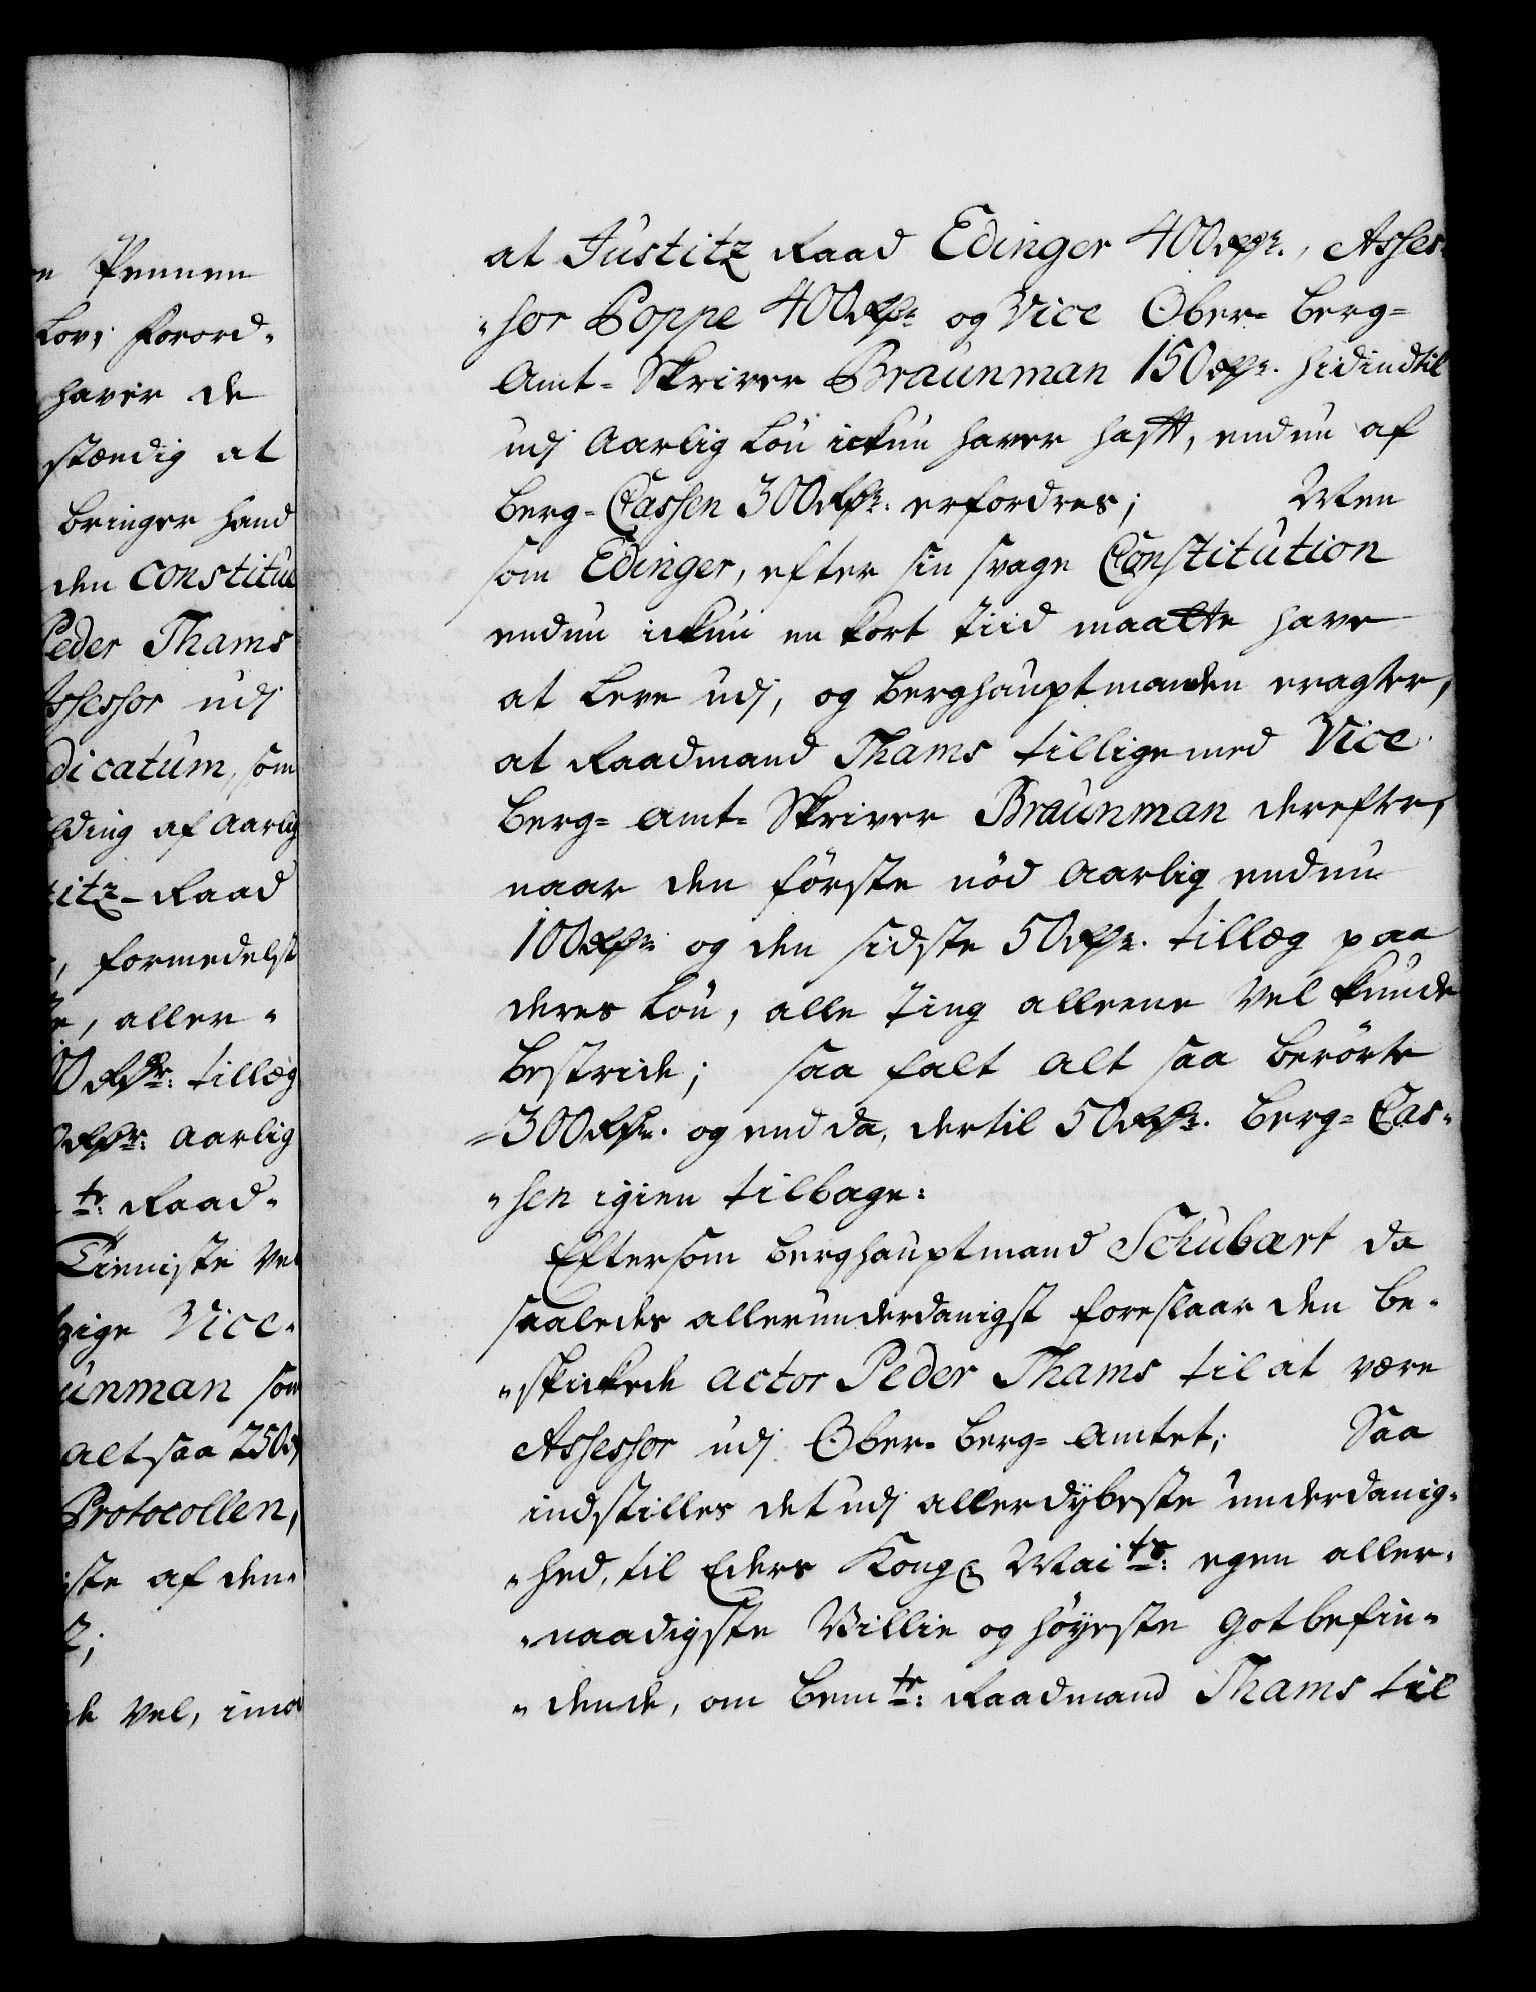 e Pennen
Lov, forord-
haver de
stændig at
bringer hand
den Constitue
Peder Thams
Assessor udj
dicatum, som
lding af aarlig
titz-Raad
, formedelst
e, aller-
00 Rdr: tillæg
0 Rdr: aarlig
te: Raad-
Tieniste vel
zige Vice-
unman som
alt saa 250
Protocollen,
iste af den-
t;
de vel, imod
at Justitz Raad Edinger 400 Rdr., Asses-
-sor Poppe 400 Rdr. og Vice Ober- Berg-
Amt- Skriver Braunman 150 Rdr. hidindtil
udj aarlig Løn ickun haver hafft, endnu af
Berg- Cassen 300 Rdr. erfordres; Men
som Edinger, efter sin svage Constitution
endnu ickun en kort tiid maatte have
at leve udj, og Berghauptmanden eragter,
at Raadmand Thams tilligemed Vice
Berg- Amt- Skriver Braunman derefter,
naar den første nød aarlig endnu
100 Rdr. og den sidste 50 Rdr. tillæg paa
deres Løn, alle ting alleene vel kunde
bestride; saa falt alt saa berørte
300 Rdr. og endda, dertil 50 Rdr. Berg- Cas-
-sen igien tilbage:
Eftersom Berghauptmand Schubært da
saaledes allerunderdanigst foreslaar den be-
-skickede actor Peder Thams til at være
Assessor udj Ober- Berg- Amtet; Saa
indstilles det udj allerdybeste underdanig-
-hed, til Eders Kongl. Maits: egen aller-
-naadigste Villie og høyeste Gotbefin-
-dende, om bemte: Raadmand Thams til